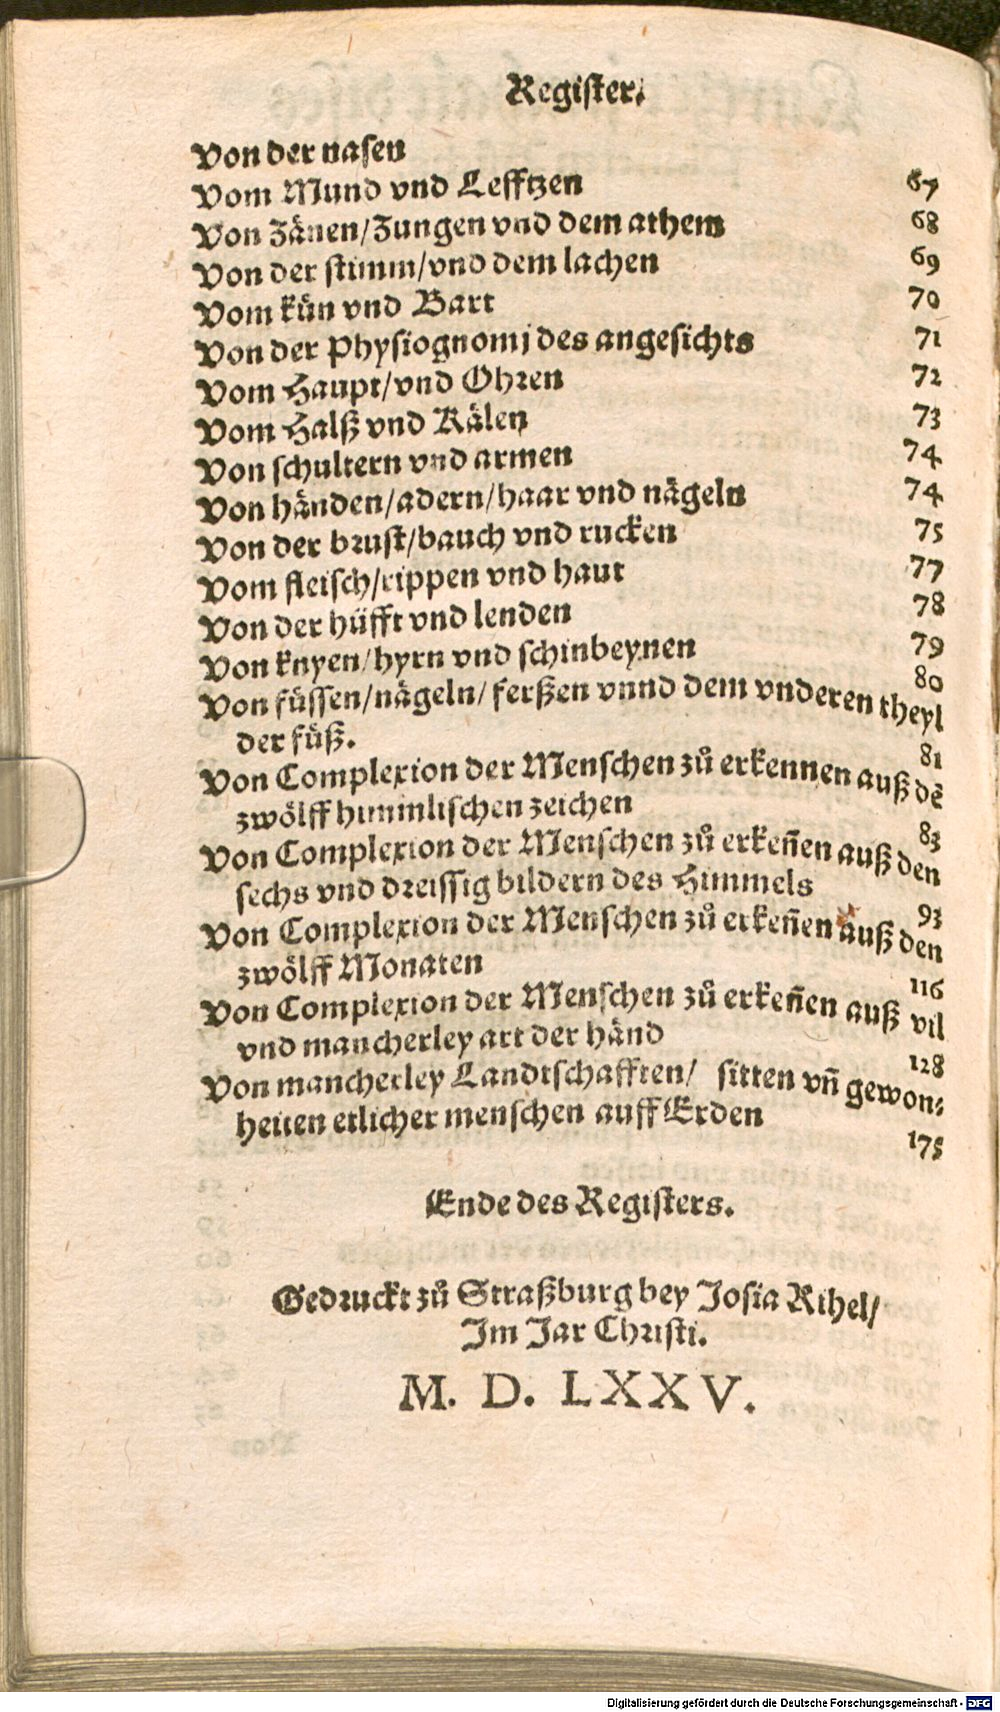 Register.
Von der nasen 67
Vom Mund vnd Lefftzen 68
Von Zänen/Zungen vnd dem athem 69
Von der stimm/vnd dem lachen 70
Vom kün vnd Bart 71
Von der Physiognomj des angesichts 72
Vom Haupt/vnd Ohren 73
Vom Halß vnd Kälen 74
Von schultern vnd armen 74
Von händen/adern/haar vnd nägeln 75
Von der brust/bauch vnd rucken 77
Vom fleisch/rippen vnd haut 78
Von der hüfft vnd lenden 79
Von knyen/hyrn vnd schinbeynen 80
Von füssen/nägeln/ ferßen vnnd dem vnderen theyl
der füß. 81
Von Complexion der Menschen zů erkennen auß dē
zwölff himmlischen zeichen 83
Von Complexion der Menschen zů erkeñen auß den
sechs vnd dreissig bildern des Himmels 93
Von Complexion der Menschen zů erkeñen auß den
zwölff Monaten 116
Von Complexion der Menschen zů erkeñen auß vil
vnd mancherley art der händ 128
Von mancherley Landtschafften/ sitten vñ gewon⸗
heiten etlicher menschen auff Erden 175
Ende des Registers.
Gedruckt zů Straßburg bey Josia Rihel/
Im Jar Christi.
M. D. LXXV.
Digitalisierung gefördert durch die Deutsche Forschungsgemeinschaft - DFG